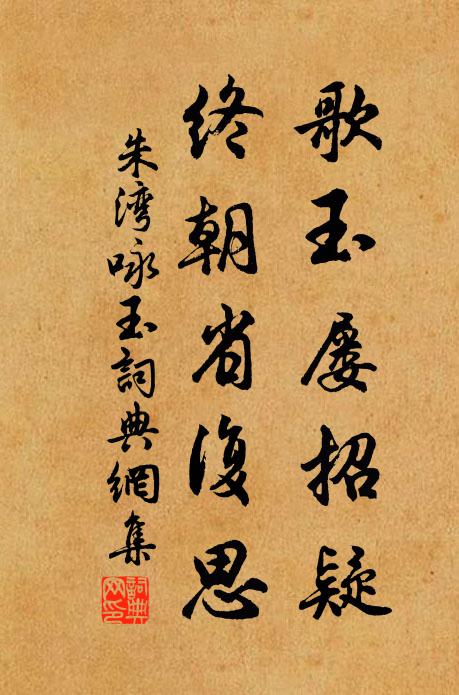 歌玉屡招疑
终朝省復思
朱湾咏玉詞典網集
詞典网印